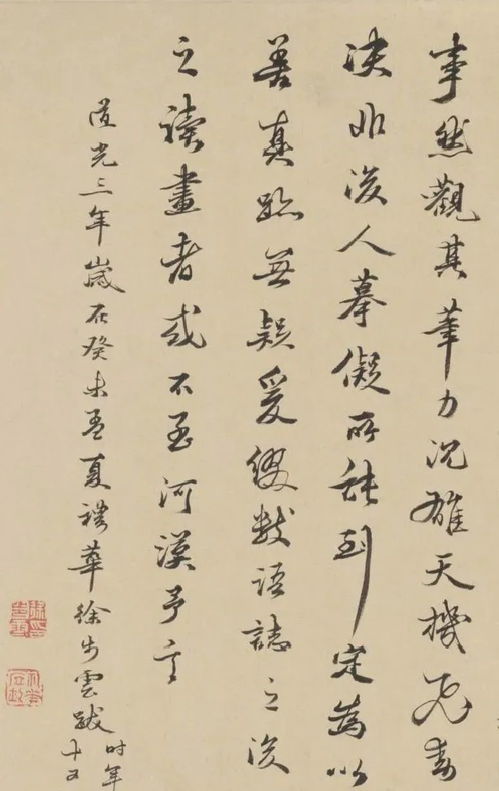 事然觀其筆力沉雄天機飛動
決非後人摹儗所能到定為以
善真跡無疑爰綴數語誌之後
之讀畫者或不至河漢予言
道光三年歲在癸未孟夏禮華徐步雲跋
時年